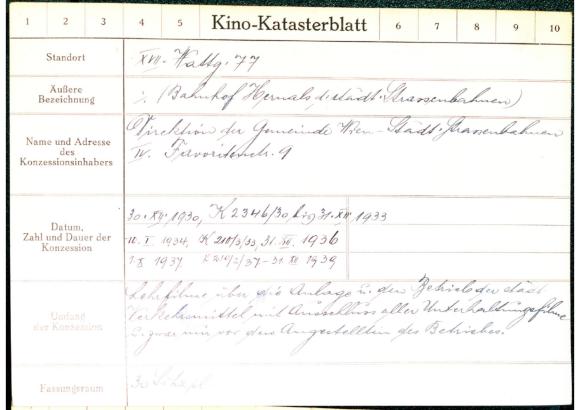 1 2 3 4 5 Kino-Katasterblatt 6 7 8 9 10
Standort XVII. Wattg. 77
Äußere Bezeichnung ·/. (Bahnhof Hernals d. städt. Strassenbahnen)
Name und Adresse des Konzessionsinhabers Direktion der Gemeinde Wien - Städt. Strassenbahnen
IV. Favoritenstr. 9
Datum, Zahl und Dauer der Konzession 30. XII. 1930, K 2346/30, bis 31. XII 1933
10. I. 1934, 31. XII. 1936
1937 31. XII 1939
Umfang der Konzession Lehrfilme über die Anlage u. den Betrieb der städt
Verkehrsmittel mit Ausschluss aller Unterhaltungsfilme
u. zwar nur vor den Angestellten des Betriebes.
Fassungsraum 30